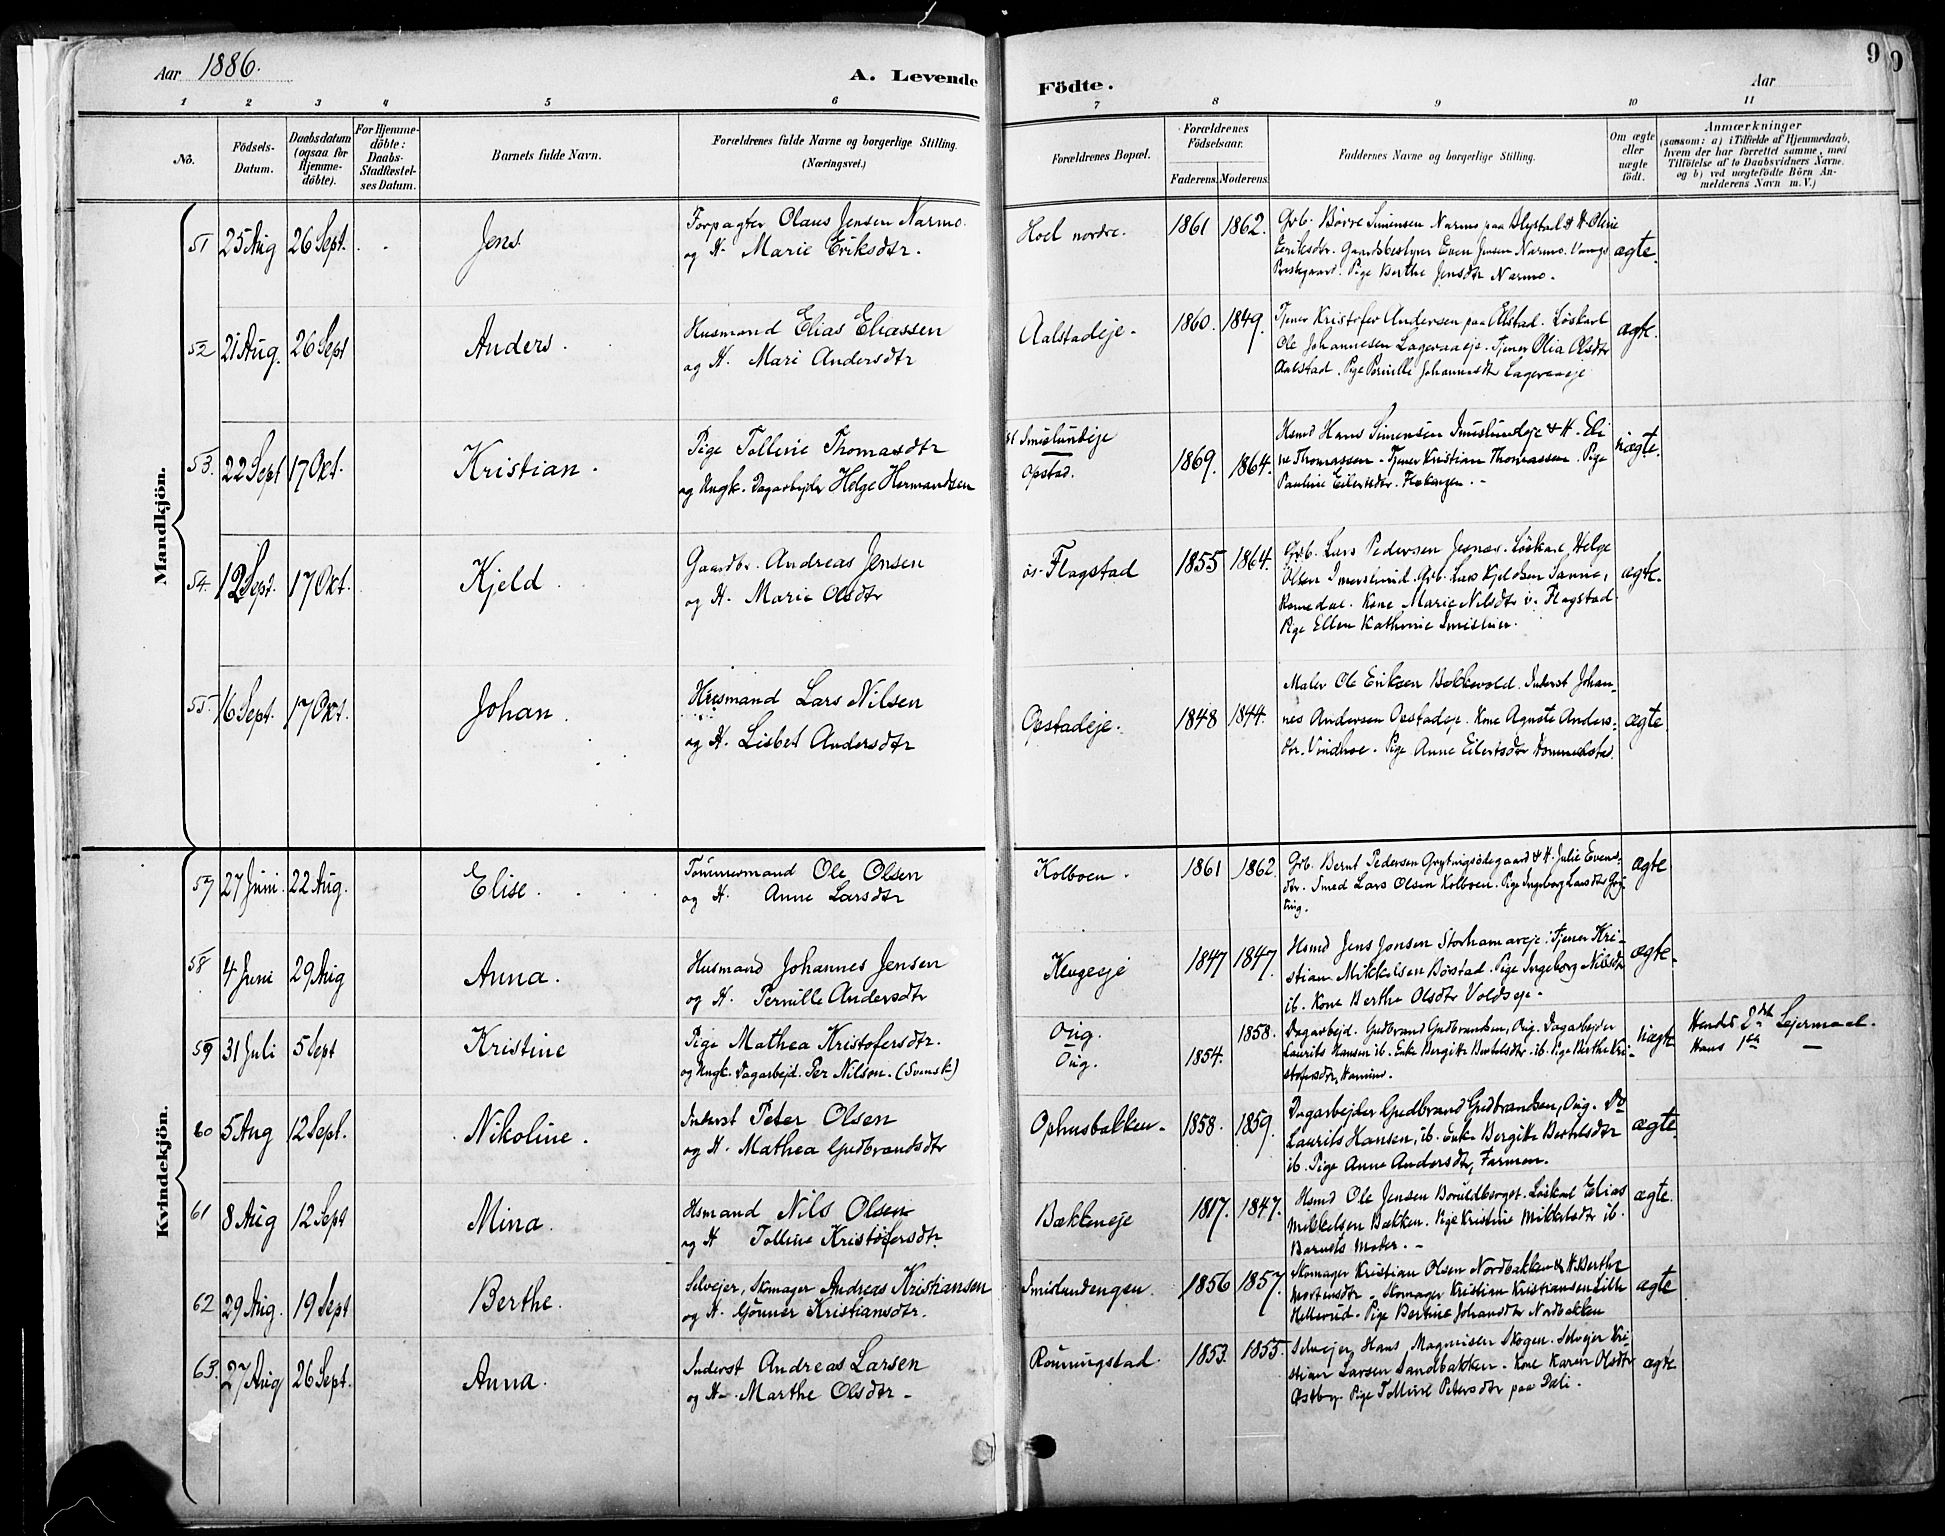 Aar 1886.
A. Levende Fødte.
Aar
9
9
1 2 3 4 5 6 7 8 9 10 11
No.
Fødsels-
Datum.
Daabsdatum
(ogsaa for
Hjemme-
døbte).
For Hjemme-
døbte:
Daabs-
Stadfæstel-
ses Datum.
Barnets fulde Navn.
Forældrenes fulde Navne og borgerlige Stilling.
(Næringsvei.)
Forældrenes Bopæl.
Forældrenes
Fødselsaar.
Faderens. Moderens.
Faddernes Navne og borgerlige Stilling.
Om ægte
eller
uægte
født.
Anmærkninger
(saasom: a) i Tilfælde af Hjemmedaab,
hvem der har forrettet samme, med
Tilføielse af to Daabsvidners Navne,
og b) ved uægtefødte Børn An-
melderens Navn m. V.)
Mandkjön.
51 25 Aug 26 Sept. Jens
Forpagter Olaus Jensen Narmo.
og H. Marie Eriksdtr.
Hoel nordre. 1861 1862.
Grb. Børre Simensen Narmo paa Alestad & H. Oline
Eriksdtr. Gaardsbestyrer Even Jensen Narmo. Vangs
Prestegaard. Pige Berthe Jensdtr Narmo.
ægte.
52 21 Aug. 26 Sept Anders.
Husmand Elias Eliassen
og H. Mari Andersdtr
Aalstadeje. 1860. 1849.
Tjener Kristofer Andersen paa Alstad. Løskarl
Ole Johannesen Lageraaeje. Tjener Olia Olsdtr
Aalstad. Pige Pernille Johannesdtr Lageraaeje
ægte.
53. 22 Sept 17 Okt. Kristian.
Pige Tolline Thomasdtr
og Ungk. Dagarbejder Helge Hermandsen
Imislundeje
Opstad. 1869. 1864.
Hsmd Hans Simensen Imislundeje & H. Eli
ne Thomassen. Tjener Kristian Thomassen. Pige
Pauline Eilertsdtr.
uægte.
54. 12 Sept. 17 Okt. Kjeld
Gaardbr. Andreas Jensen
og H. Marie Olsdtr
øs. Flagstad 1855 1864.
Grb. Lars Pedersen Jesnæs. Løskarl Helge
Olsen Imerslund. Grb. Lars Kjeldsen Sanne,
Romedal. Kone Marie Nilsdtr v. Flagstad.
Pige Ellen Kathrine
ægte.
55. 16 Sept. 17 Okt. Johan.
Husmand Lars Nilsen
og H. Lisbet Andersdtr
Opstadeje. 1848 1844.
Maler Ole Eriksen Bekkevold. Inderst Johan-
nes Andersen Opstadeje. Kone Agnete Anders-
dtr. Vindhoe. Pige Anne Eilertsdtr Hommelstad.
ægte
Kvindekjön.
57 27 Juni. 22 Aug. Elise.
Tømmermand Ole Olsen
og H. Anne Larsdtr
Kolboen. 1861 1862.
Grb. Bernt Pedersen Grytingsødegaard & H. Julie Evens-
dtr. Smed Lars Olsen Kolboen. Pige Ingeborg Larsdtr Gry-
ting.
ægte
58 4 Juni 29 Aug Anna.
Husmand Johannes Jensen
og H. Pernille Andersdtr
Klugeeje 1847 1847.
Hsmd Jens Jonsen Storhamareje. Tjener Kri-
stian Mikkelsen Børstad. Pige Ingeborg Nilsdtr
ib. Kone Berthe Olsdtr Voldseje.
ægte.
59 31 Juli 5 Sept Kristine
Pige Mathea Kristofersdtr.
og Ungk. Dagarbejd. Per Nilson. (Svensk)
Oug.
Oug. 1854. 1858.
Dagarbejd. Gudbrand Gudbrandsen, Oug. Dagarbejder
Laurits Hansen ib. Enke Bergitte Berthelsdtr. ib. Pige Berthe Kri-
stofersdtr,
uægte
Hendes 2det Lejermaal.
Hans 1ste —
60 5 Aug 12 Sept. Nikoline.
Inderst Peter Olsen
og H. Mathea Gudbrandsdtr
Ophusbakken. 1858. 1859.
Dagarbejder Gudbrand Gudbrandsen, Oug. Do
Laurits Hansen, ib. Enke Bergitte Berthelsdtr
ib. Pige Anne Andersdtr, Farmen.
ægte.
61 8 Aug 12 Sept Mina.
Hsmand Nils Olsen
og H Tolline Kristofersdtr.
Bækkeneje 1817. 1847.
Hsmd Ole Jensen Bouldberget. Løskarl Elias
Mikkelsen Bækken. Pige Kristine Mikkelsdtr ib.
Barnets Moder.
ægte.
62 29 Aug. 19 Sept Berthe.
Selvejer, Skomager Andreas Kristiansen
og H. Gunner Kristiansdtr.
Smidundengen. 1856 1857.
Skomager Kristian Olsen Nordbakken & H. Berthe
Mortensdtr. Skomager Kristian Kristiansen Lille
Hellerud. Pige Bertine Johansdtr Nordbakken
ægte
63. 27 Aug 26 Sept. Anna.
Inderst Andreas Larsen
og H. Marthe Olsdtr.
Rønningstad. 1853. 1855.
Selvejer Hans Magnusen Skogen. Selvejer Kri-
stian Larsen Sandbakken. Kone Karen Olsdtr
Østby. Pige Tolline Petersdtr paa Dæli.
ægte